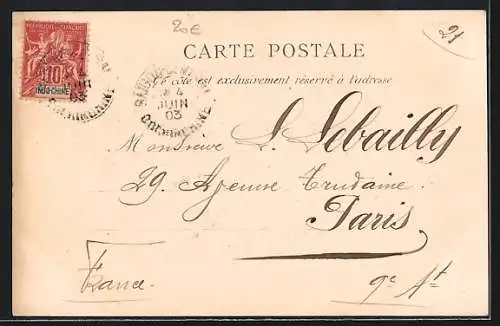 20€
21
RÉPUBLIQUE FRANÇAISE
10
INDO-CHINE
CARTE POSTALE
Ce côté est exclusivement réservé à l'adresse
4
JUIN
03
COCHINCHINE
Monsieur L. Lebailly
29. Avenue Trudaine.
Paris
France.
9e At